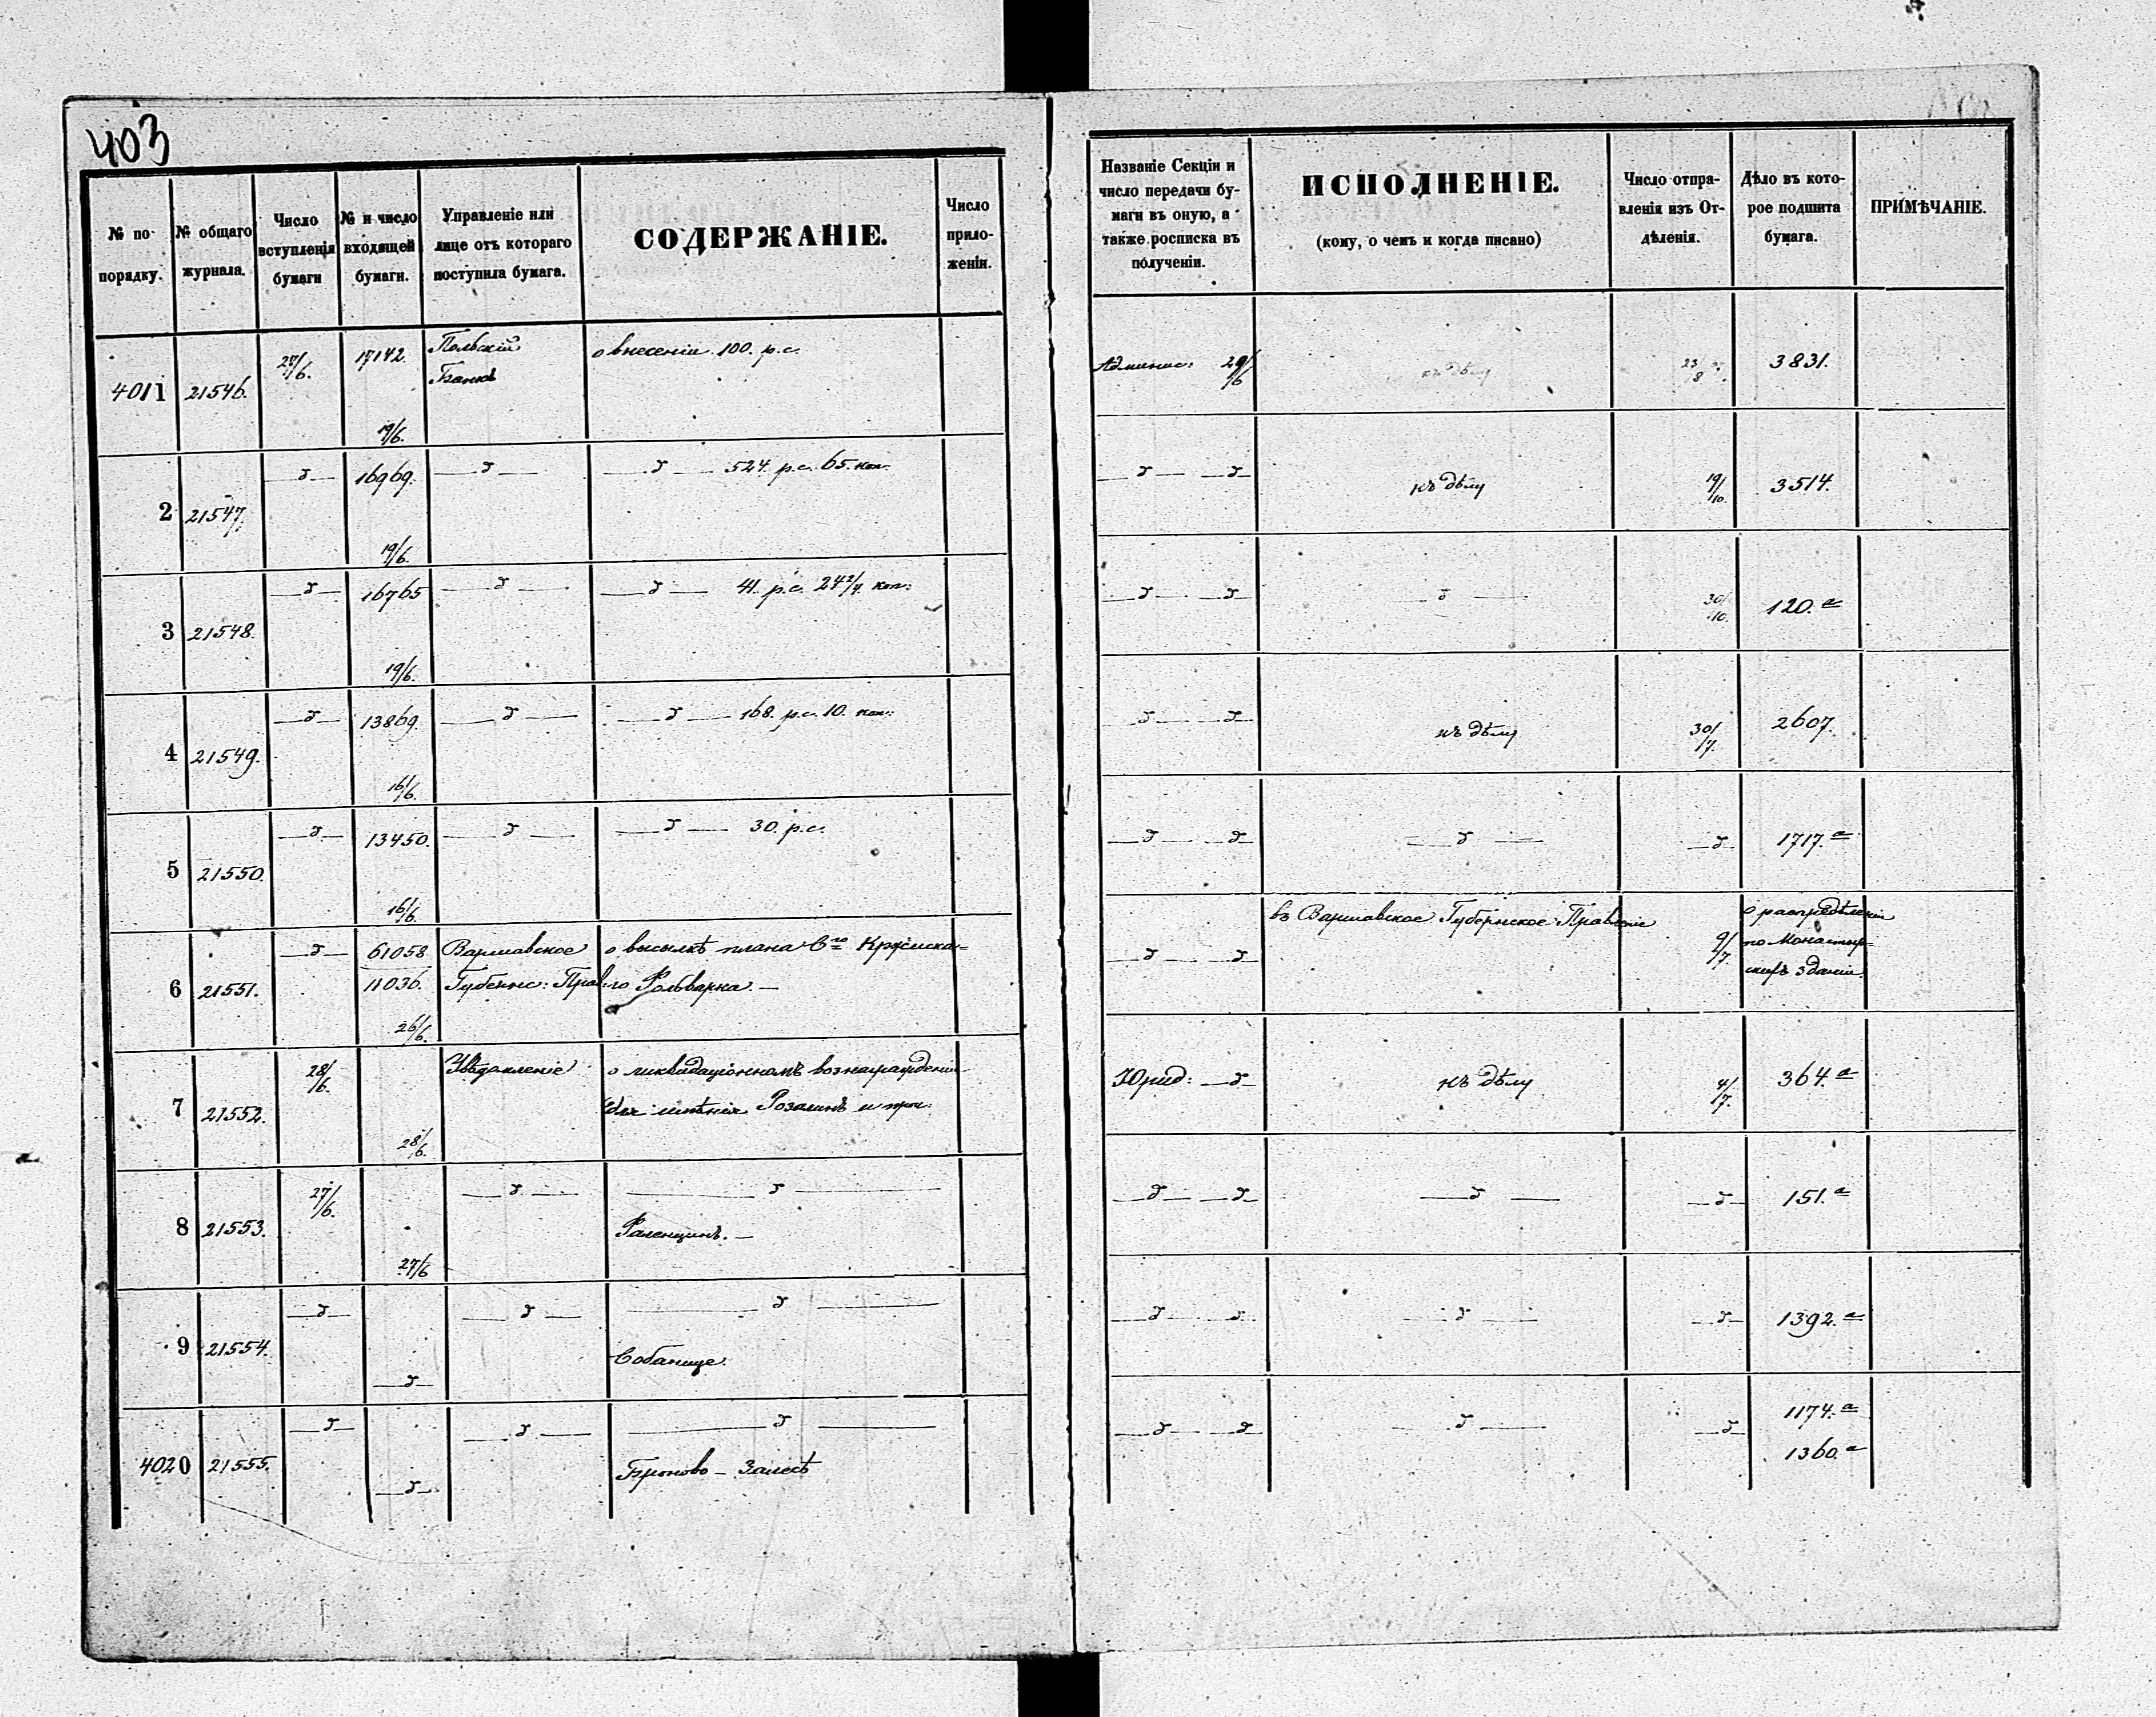 403
№ по порядку.
№ общаго журнала.
Число вступленія бумаги
№ и число входящей бумаги.
Управленіе или лице отъ котораго поступила бумага.
СОДЕРЖАНІЕ.
Число приложеніи.
Названіе Секціи и число передачи бумаги въ оную, а также росписка въ полученіи.
ИСПОЛНЕНІЕ.
(кому, о чемъ и когда писано)
Число отправленія изъ Отдѣленія.
Дѣло въ которое подшита бумага.
ПРИМѢЧАНІЕ.
4011 21546. 27/6. 17142. Польскій о внесеніи 100. р.с. Админис: 29/6 къ дѣлу 23/8 3831.
Банкъ
19/6.
2 21547. —д— 16969. —д— —д— 524. р.с. 65. коп. —д— —д къ дѣлу 19/10. 3514.
19/6.
3 21548. —д— 16765 —д— —д— 41. р.с. 24 2/4. коп: —д— —д —д— 30/10. 120.а
19/6.
4 21549. —д— 13869. —д— —д— 168. р.с. 10. коп: —д— —д къ дѣлу 30/7. 2607.
16/6.
5 21550. —д— 13450. —д— —д— 30. р.с. —д— —д —д— —д 1717.а
16/6.
6 21551. —д— 61058 Варшавское о высылкѣ плана —д— —д въ Варшавское Губернское Правленіе 9/7. о распредѣленіи
11036. Губернс: Правл: Фольварка. — по Монастыр=
26/6. скихъ зданіи
7 21552. 28/6. Увѣдомленіе о ликвидаціонномъ вознагражденіи Юрид: —д къ дѣлу 4/7. 364.а
для имѣнія Розалинъ и проч:
28/6.
8 21553. 27/6. —д— —д— —д— —д —д— —д 151.а
Фаленцинъ. —
27/6
9 21554. —д— —д— —д— —д— —д —д— —д 1392.а
Собанице.
—д—
4020 21555. —д— —д— —д— —д— —д —д— —д 1174.а
Броново — Залесѣ 1360.а
—д—